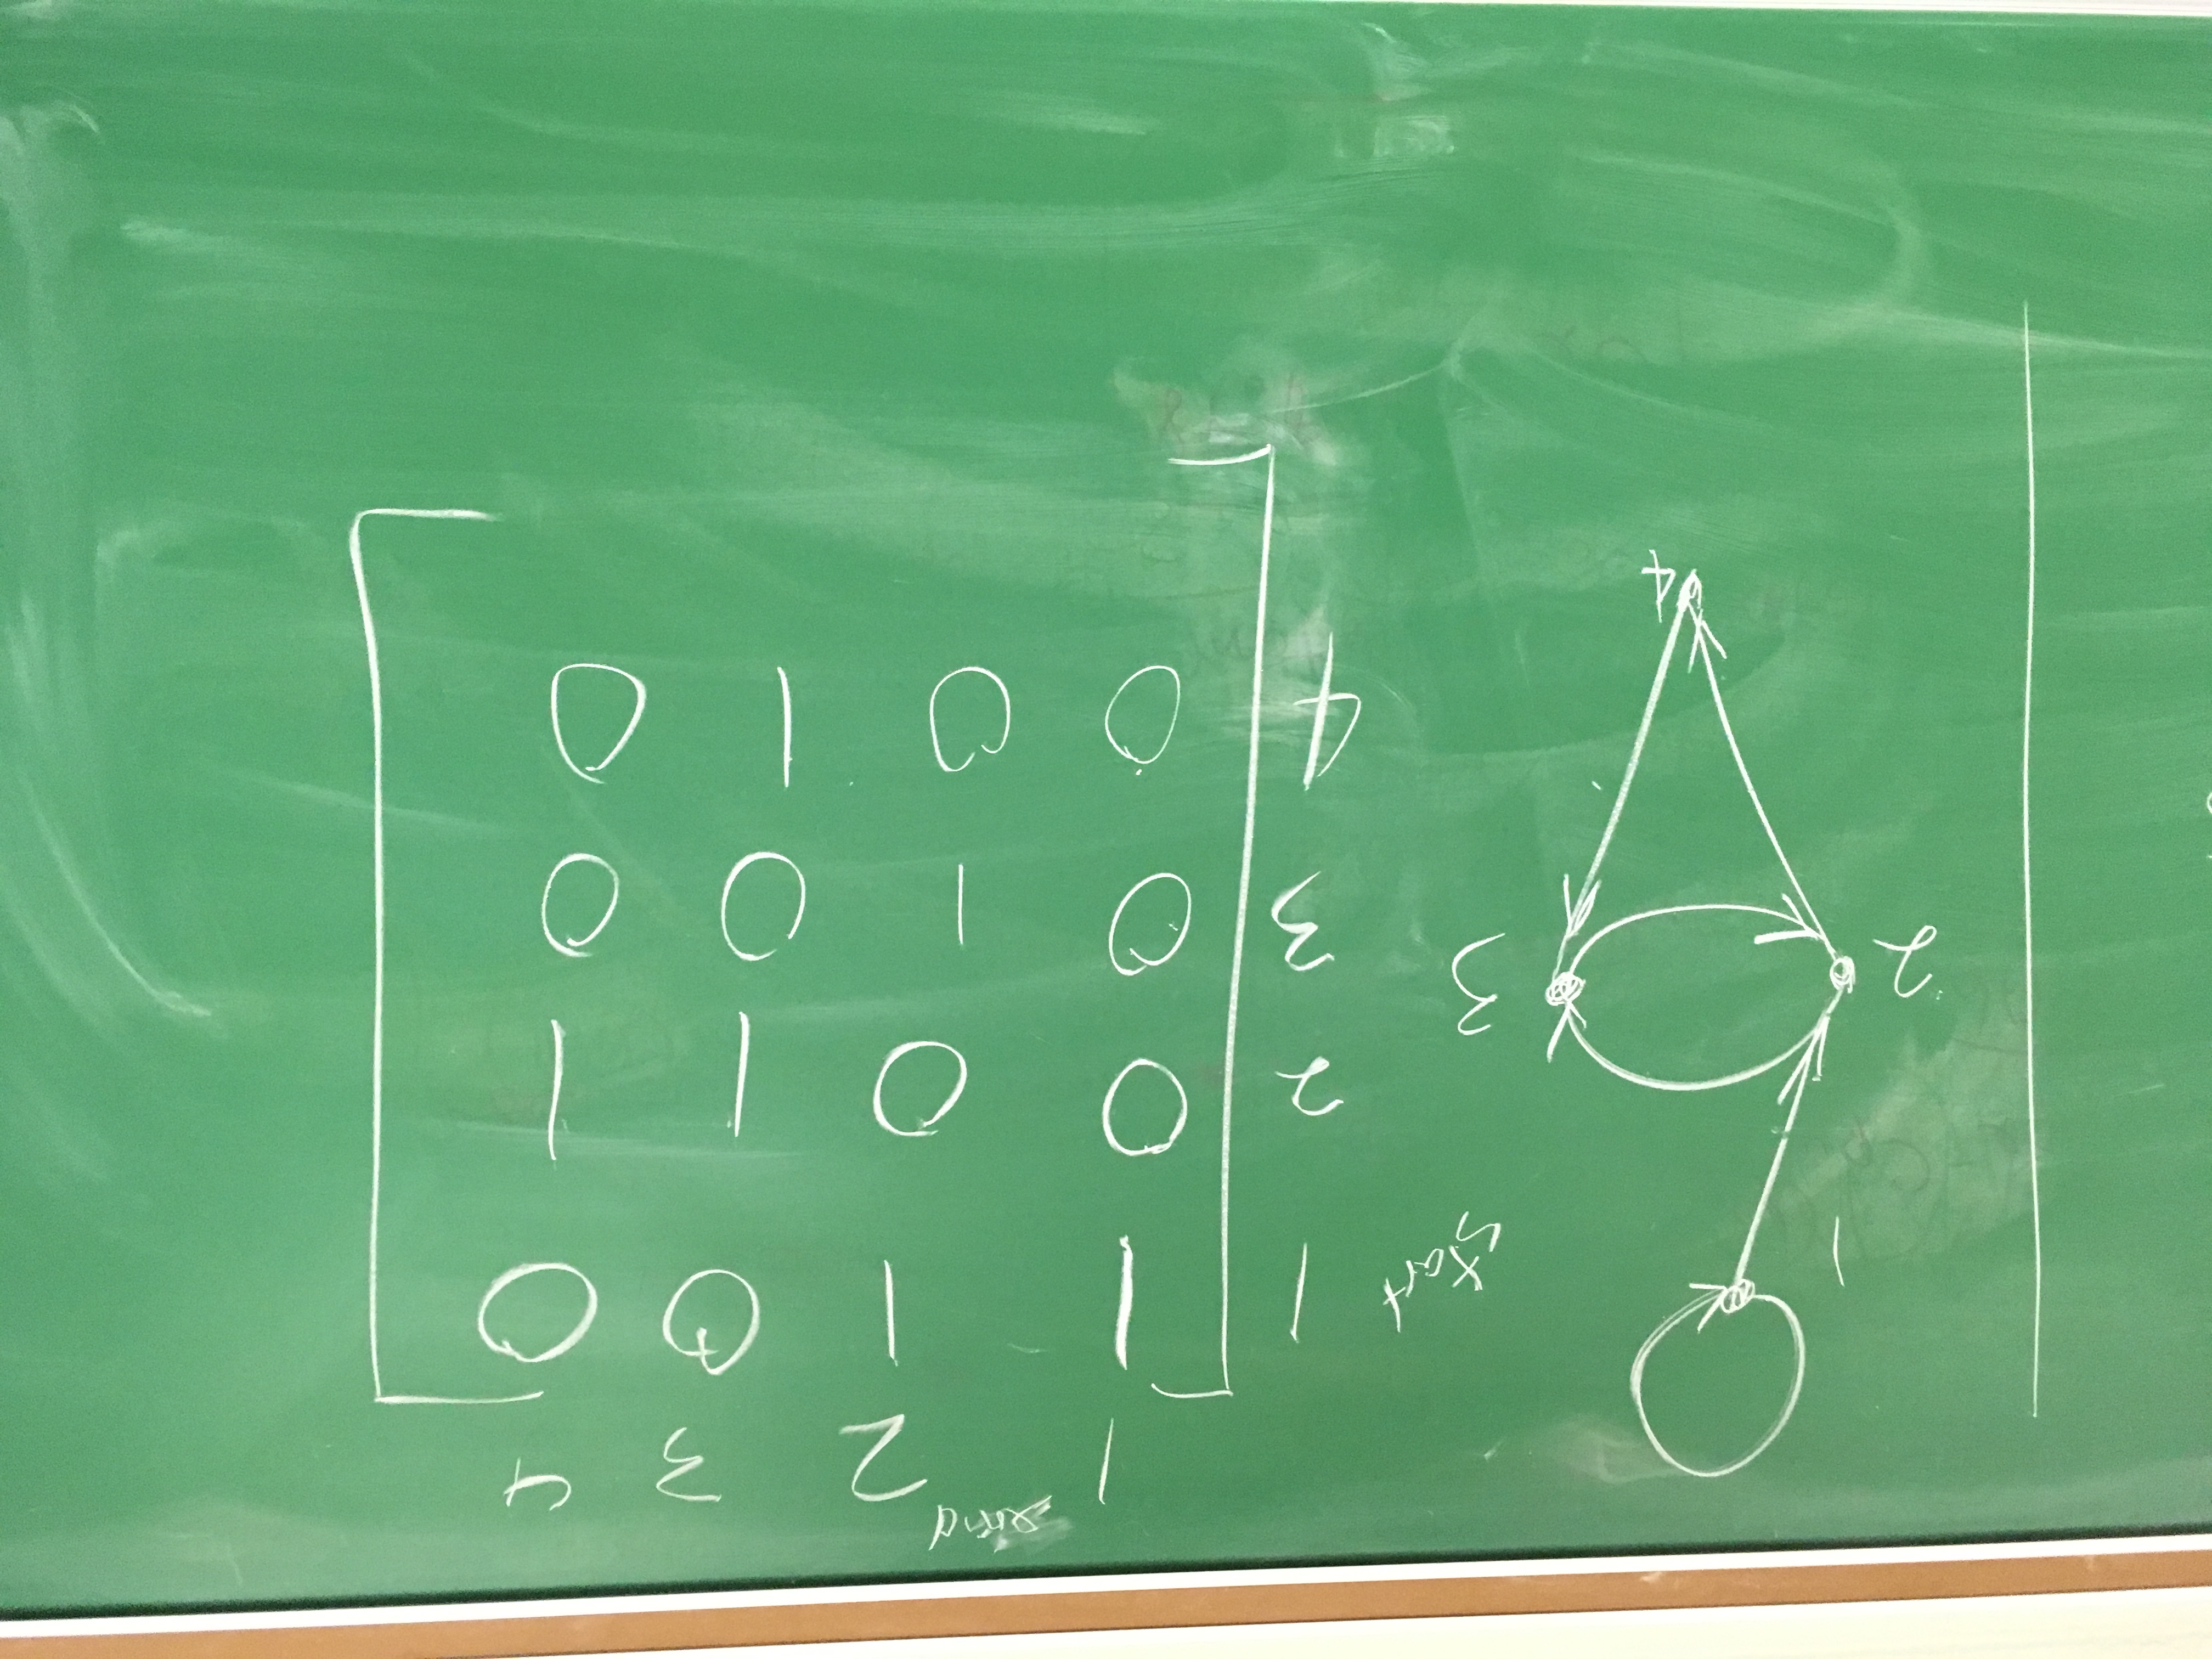 end
1 2 3 4
start 1 1 1 0 0
2 0 0 1 1
3 0 1 0 0
4 0 0 1 0
1
2
3
4